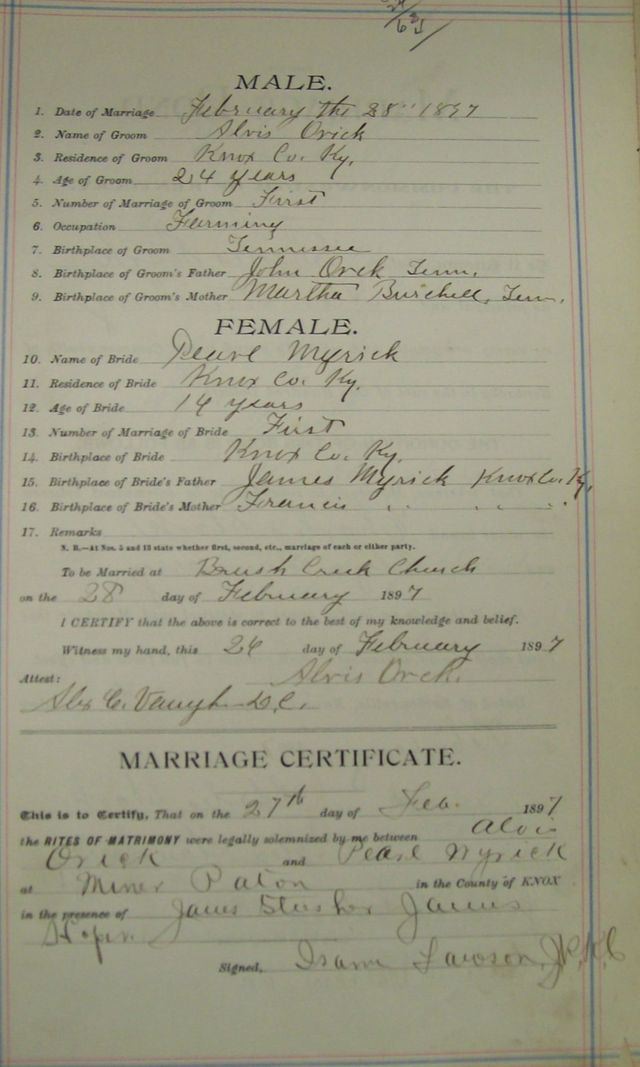 MALE.
1. Date of Marriage February the 28" 1897
2. Name of Groom Alvis Orick
3. Residence of Groom Knox Co. Ky.
4. Age of Groom 24 years
5. Number of Marriage of Groom First
6. Occupation Farming
7. Birthplace of Groom Tennessee
8. Birthplace of Groom's Father John Orck Tenn.
9. Birthplace of Groom's Mother Martha Burchell, Tenn.
FEMALE.
10. Name of Bride Pearl Myrick
11. Residence of Bride Knox Co. Ky.
12. Age of Bride 14 years
13. Number of Marriage of Bride First
14. Birthplace of Bride Knox Co. Ky.
15. Birthplace of Bride's Father James Myrick Knox Co. Ky.
16. Birthplace of Bride's Mother Francis " " " "
17. Remarks
N. B.—At Nos. 5 and 13 state whether first, second, etc., marriage of each or either party.
To be Married at Brush Creek Church
on the 28 day of February 1897
I CERTIFY that the above is correct to the best of my knowledge and belief.
Witness my hand, this 26 day of February 1897
Attest: Alvis Orck.
Alex C. Vaughn D.C.
MARRIAGE CERTIFICATE.
This is to Certify, That on the 27th day of Feb. 1897
the RITES OF MATRIMONY were legally solemnized by me between Alvis
Orick and Pearl Myrick
at Miner in the County of KNOX
in the presence of James James
Signed, Lawson, J.P.K.C